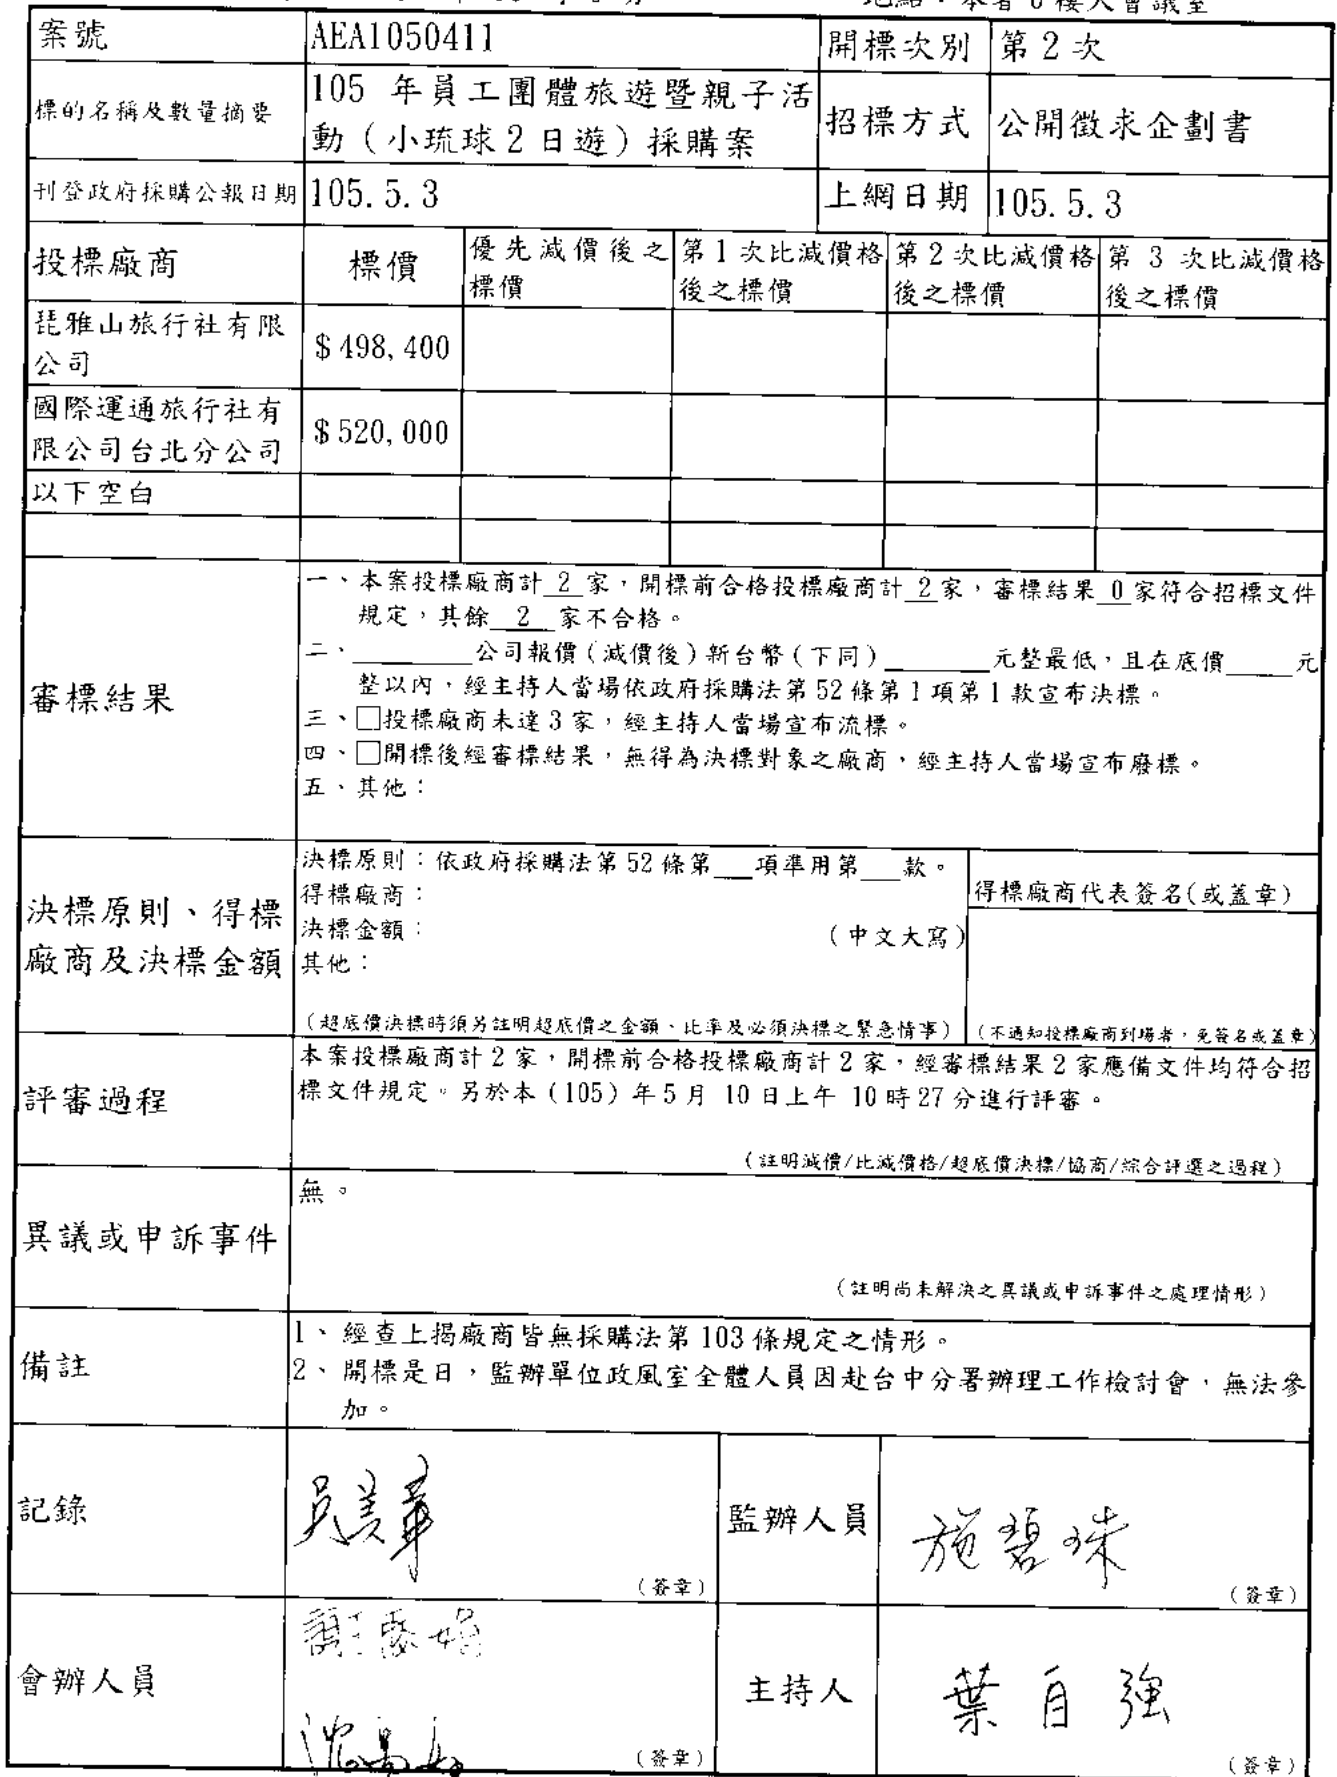 地點：本署6樓大會議室
案號 AEA1050411 開標次別 第2次
標的名稱及數量摘要 105 年員工團體旅遊暨親子活
動（小琉球2日遊）採購案 招標方式 公開徵求企劃書
刊登政府採購公報日期 105.5.3 上網日期 105.5.3
投標廠商 標價 優先減價後之 第1次比減價格 第2次比減價格 第 3 次比減價格
標價 後之標價 後之標價 後之標價
琵雅山旅行社有限
公司 $498,400
國際運通旅行社有
限公司台北分公司 $520,000
以下空白
審標結果
一、本案投標廠商計 2 家，開標前合格投標廠商計 2 家，審標結果 0 家符合招標文件
規定，其餘 2 家不合格。
二、________公司報價（減價後）新台幣（下同）_______元整最低，且在底價_____元
整以內，經主持人當場依政府採購法第52條第1項第1款宣布決標。
三、□投標廠商未達3家，經主持人當場宣布流標。
四、□開標後經審標結果，無得為決標對象之廠商，經主持人當場宣布廢標。
五、其他：
決標原則、得標
廠商及決標金額
決標原則：依政府採購法第52條第___項準用第___款。
得標廠商：
決標金額： （中文大寫）
其他：
（超底價決標時須另註明超底價之金額、比率及必須決標之緊急情事）
得標廠商代表簽名(或蓋章)
（不通知投標廠商到場者，免簽名或蓋章）
評審過程
本案投標廠商計2家，開標前合格投標廠商計2家，經審標結果2家應備文件均符合招
標文件規定。另於本（105）年5月 10日上午 10時27分進行評審。
（註明減價/比減價格/超底價決標/協商/綜合評選之過程）
異議或申訴事件
無。
（註明尚未解決之異議或申訴事件之處理情形）
備註
1、經查上揭廠商皆無採購法第103條規定之情形。
2、開標是日，監辦單位政風室全體人員因赴台中分署辦理工作檢討會，無法參
加。
記錄 吳美華 （簽章） 監辦人員 施碧珠 （簽章）
會辦人員 （簽章） 主持人 葉自強 （簽章）